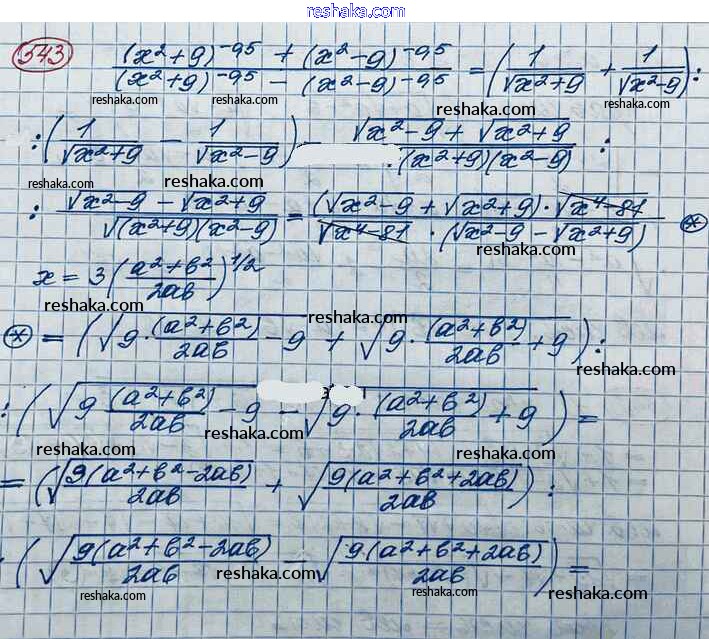 reshaka.com
543 ((x²+9)^-0,5 + (x²-9)^-0,5) / ((x²+9)^-0,5 - (x²-9)^-0,5) = (1/√(x²+9) + 1/√(x²-9)) :
reshaka.com reshaka.com reshaka.com
: (1/√(x²+9) - 1/√(x²-9)) - (√(x²-9) + √(x²+9)) / ((x²+9)(x²-9)) :
reshaka.com reshaka.com reshaka.com
: (√(x²-9) - √(x²+9)) / √((x²+9)(x²-9)) = ((√(x²-9) + √(x²+9)) · √(x⁴-81)) / (√(x⁴-81) · (√(x²-9) - √(x²+9))) *
reshaka.com reshaka.com
x = 3((a²+b²)/2ab)^1/2
reshaka.com reshaka.com
* = (√(9·(a²+b²)/2ab - 9) + √(9·(a²+b²)/2ab + 9)) :
reshaka.com reshaka.com
: (√(9(a²+b²)/2ab - 9) - √(9·(a²+b²)/2ab + 9)) =
reshaka.com reshaka.com reshaka.com
= (√(9(a²+b²-2ab)/2ab) + √(9(a²+b²+2ab)/2ab)) :
reshaka.com reshaka.com reshaka.com
: (√(9(a²+b²-2ab)/2ab) - √(9(a²+b²+2ab)/2ab)) =
reshaka.com reshaka.com reshaka.com
reshaka.com